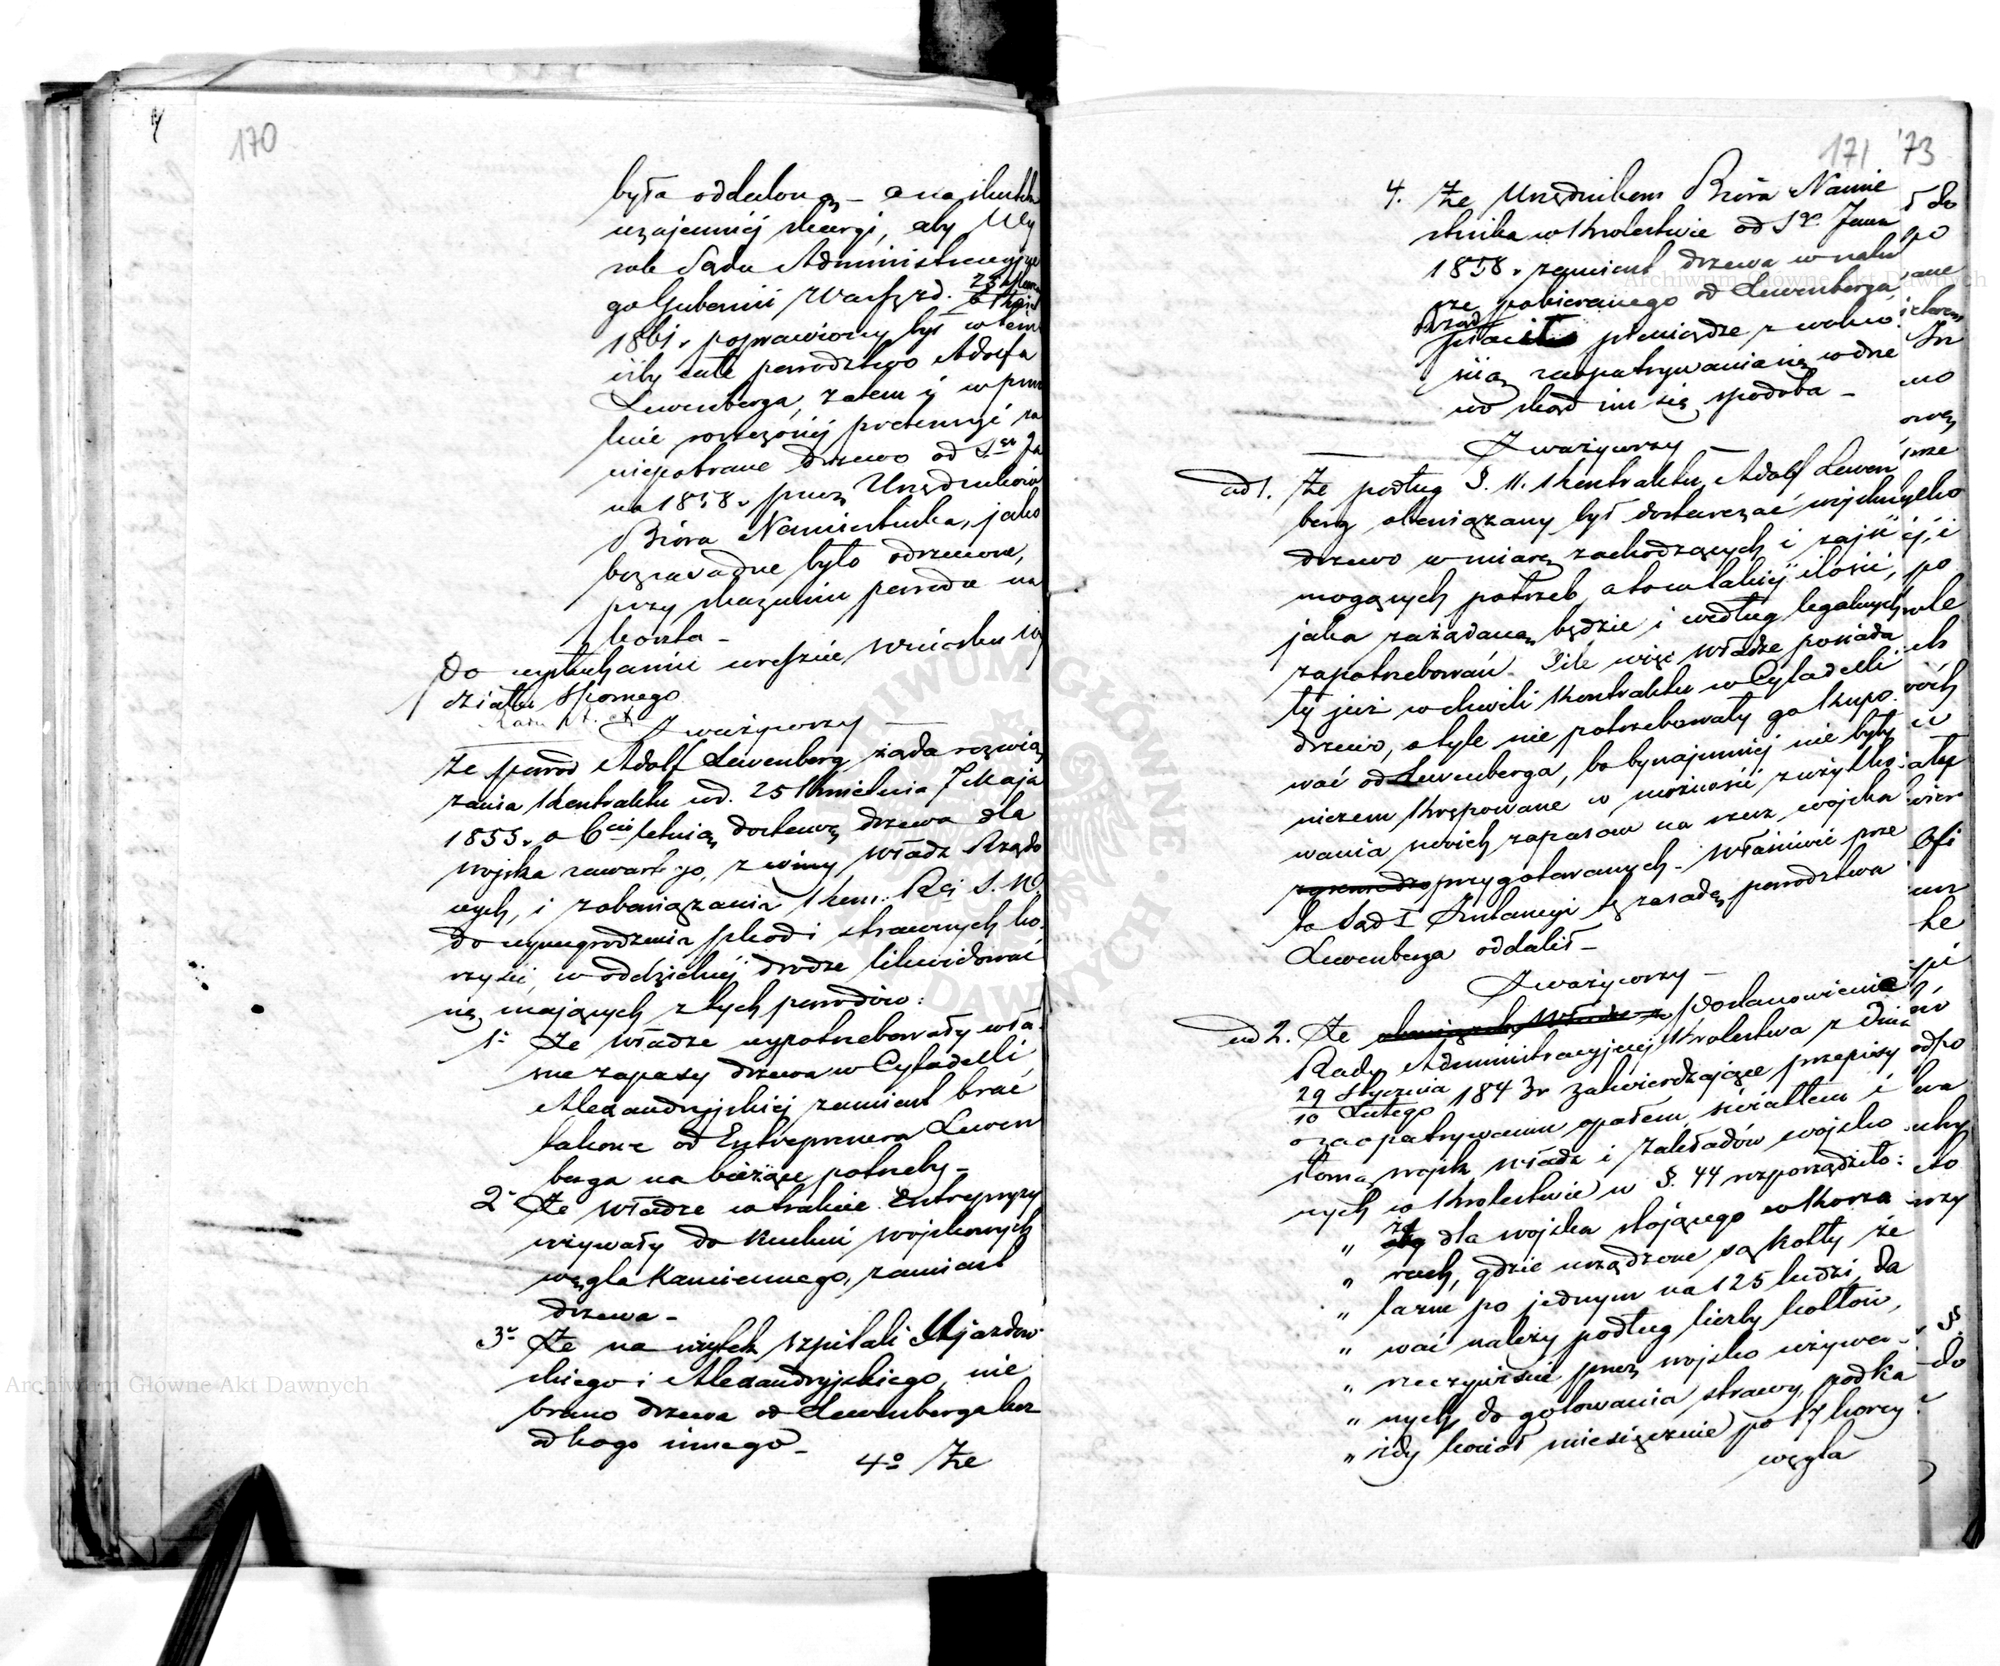 170
była oddaloną – a na skutek
wzajemnéj skargi, aby Wy
rok Sądu Administracyjne
go Gubernii Warsz. d. 25
1861 r. poprawiony był w tem
iżby całe powództwo Adolfa
Lewenberga, zatem i w przed
miocie roszczonéj pretensyi za
niepobrane drzewo od Sgo Ja
na 1858 r. przez Urzędników
Bióra Namiestnika, jako
bezzasadne było odrzucone,
przy skazaniu powoda na
koszta –
Po wysłuchaniu wreszcie wniosku
działu Spornego
Zważywszy –
Że powód Adolf Lewenberg żąda rozwią
zania Kontraktu w d. 25 Kwietnia 7 Maja
1855 r. o 6cio letnią dostawę drzewa dla
wojska zawartego, z winy Władz Rządo
wych, i zobowiązania Kom. Rej S. W.
do wynagrodzenia szkód i straconych ko
rzyści, w oddzielnéj drodze likwidować
się mających z tych powodów:
1o Że Władze wypotrzebowały wła
sne zapasy drzewa w Cytadelli
Alexandryjskiej zamiast brać
takowe od Entreprenera Lewen
berga na bieżące potrzeby –
2o Że Władze w trakcie Entrepryzy
używały do Kuchni wojskowych
węgla Kamiennego, zamiast
drzewa –
3o Że na użytek Szpitali Ujazdow
skiego i Alexandryjskiego, nie
brano drzewa od Lewenberga lecz
od kogo innego –
4o Że
171 73
4. Że Urzędnikom Bióra Namie
stnika w Królestwie od Sgo Jana
1858 r. zamiast drzewa w natu
rze pobieranego od Lewenberga,
Rząd
płacił pieniądze z wolno
ścią zaopatrywania się w drze
wo skąd im się spodoba –
Zważywszy –
ad 1. Że podług §. 11. Kontraktu, Adolf Lewen
berg obowiązany był dostarczać wojsku
drzewo w miarę zachodzących i zajść
mogących potrzeb, a to w takiéj ilości,
jaka zażądaną będzie i według legalnych
zapotrzebowań. Jeśli więc Władze posiada
ły już w chwili Kontraktu w Cytadelli
drzewo, o tyle nie potrzebowały go kupo
wać od Lewenberga, bo bynajmniéj nie były
niczem krępowane w możności zużytko
wania swoich zapasów na rzecz wojska
przygotowanych – Właściwie prze
to Sąd I Instancyi tę zasadę powództwa
Lewenberga oddalił –
Zważywszy –
ad 2. Że Postanowienie
Rady Administracyjnéj Królestwa z dnia
29 Stycznia
10 Lutego 1843 r. zatwierdzające przepisy
o zaopatrywaniu opałem, światłem i
słomą wojsk, Władz i Zakładów wojsko
wych w Królestwie w §. 44 rozporządziło:
„ że dla wojska stojącego w Kosza
„ rach, gdzie urządzone są Kotły że
„ lazne po jednym na 125 ludzi, da
„ wać należy podług liczby kotłów,
„ rzeczywiście przez wojsko używa
„ nych do gotowania strawy, pod ka
„ żdy kocioł miesięcznie po 17 korcy
węgla
Archiwum Główne Akt Dawnych
Archiwum Główne Akt Dawnych
ARCHIWUM GŁÓWNE AKT DAWNYCH